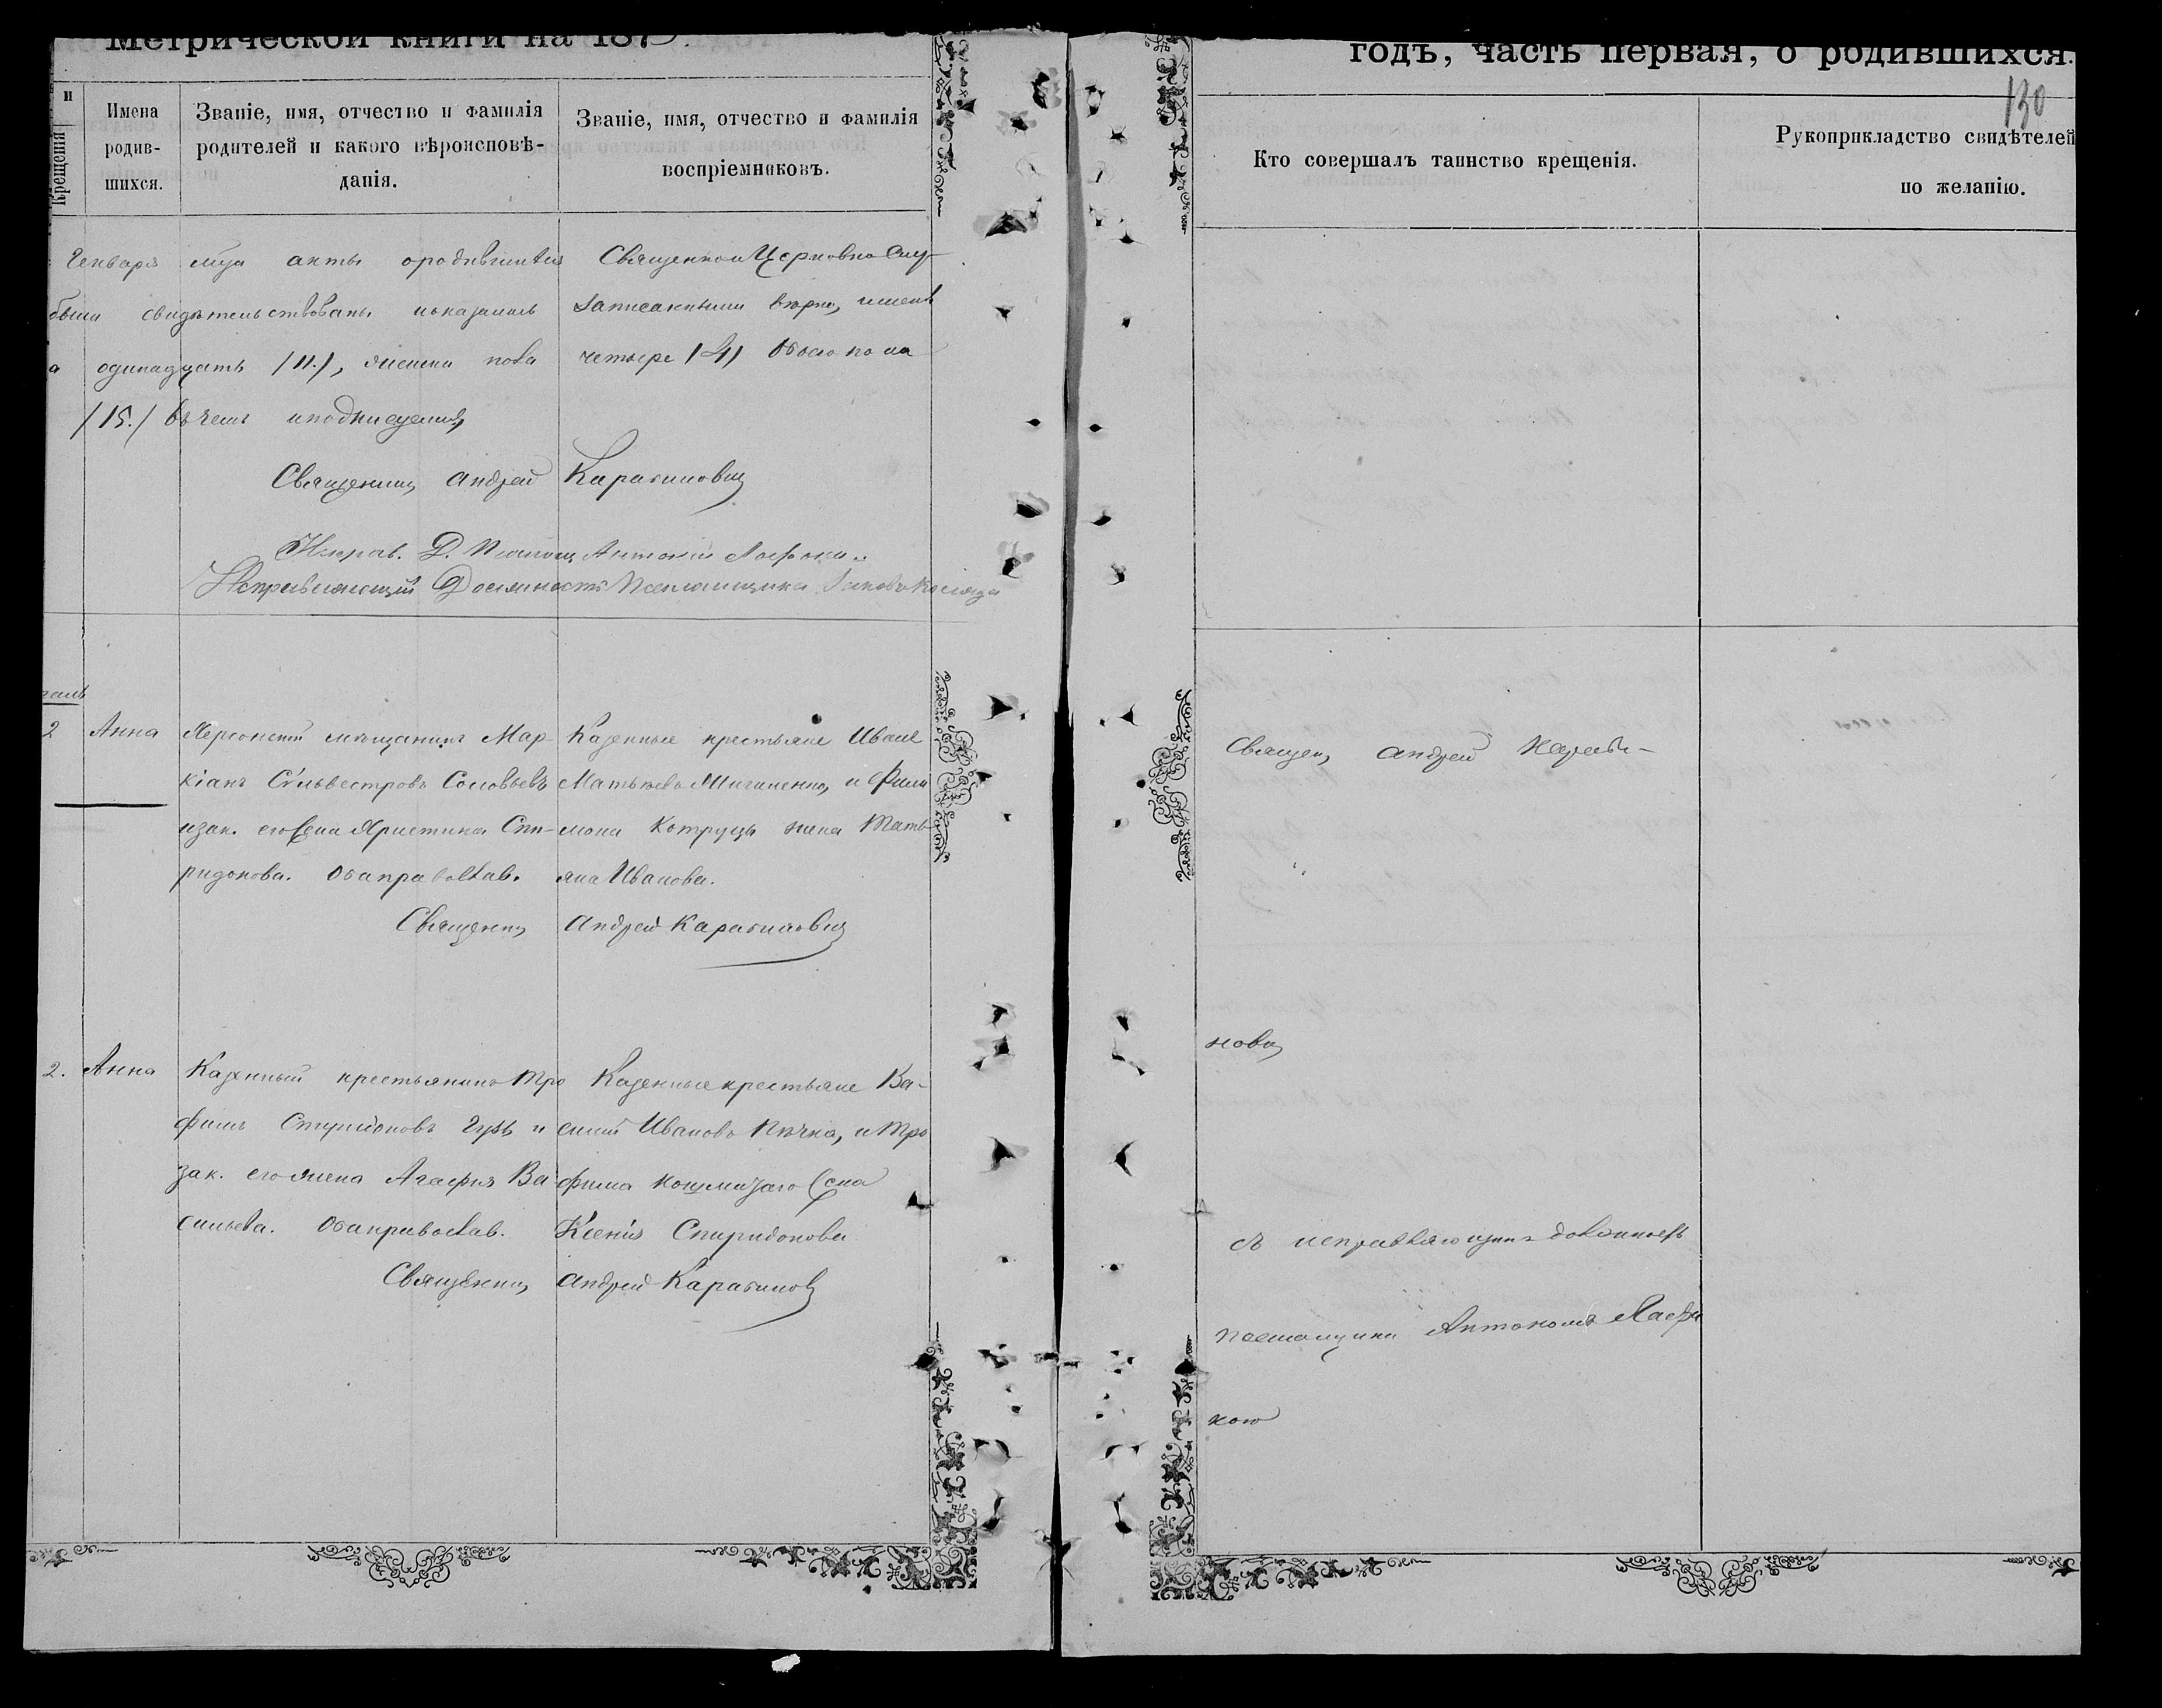 Метрической книги на 1875.
годъ, часть первая, о родившихся.
130
и
Крещенія
Имена
родив-
шихся.
Званіе, имя, отчество и фамилія
родителей и какого вѣроисповѣ-
данія.
Званіе, имя, отчество и фамилія
воспріемниковъ.
Кто совершалъ таинство крещенія.
Рукоприкладство свидѣтелей
по желанію.
Генваря мца акты Священно и Церковно Слу-
были свидѣтельствованы записанными вѣрно,
а одинадцать /11./, пола четыре /4/ обоего пола
/15./ въ чемъ и подписуемся
Священник Андрей Карабинович
Исправ. Д. Антоній
Исправляющій Должность Псаломщика
2 Анна
Херсонскій мѣщанинъ Мар-
кіанъ Сильвестровъ Соловьевъ
и зак. его жена Христина Спи-
ридонова. Оба православ.
Казенные крестьяне Иванъ
Матвѣевъ и Фили
мона жена Тать-
яна Иванова.
Священник Андрей Карабинович
Священ. Андрей Караби-
нович
2. Анна
Казенный крестьянинъ Тро
фимъ Спиридоновъ и
зак. его жена Агафія Ва
сильева. Оба православ.
Казенные крестьяне Ва-
силій Ивановъ и Тро
фима жена
Ксенія Спиридонова
Священник Андрей Карабинов
съ исправляющимъ должность
псаломщика Антономъ
кою